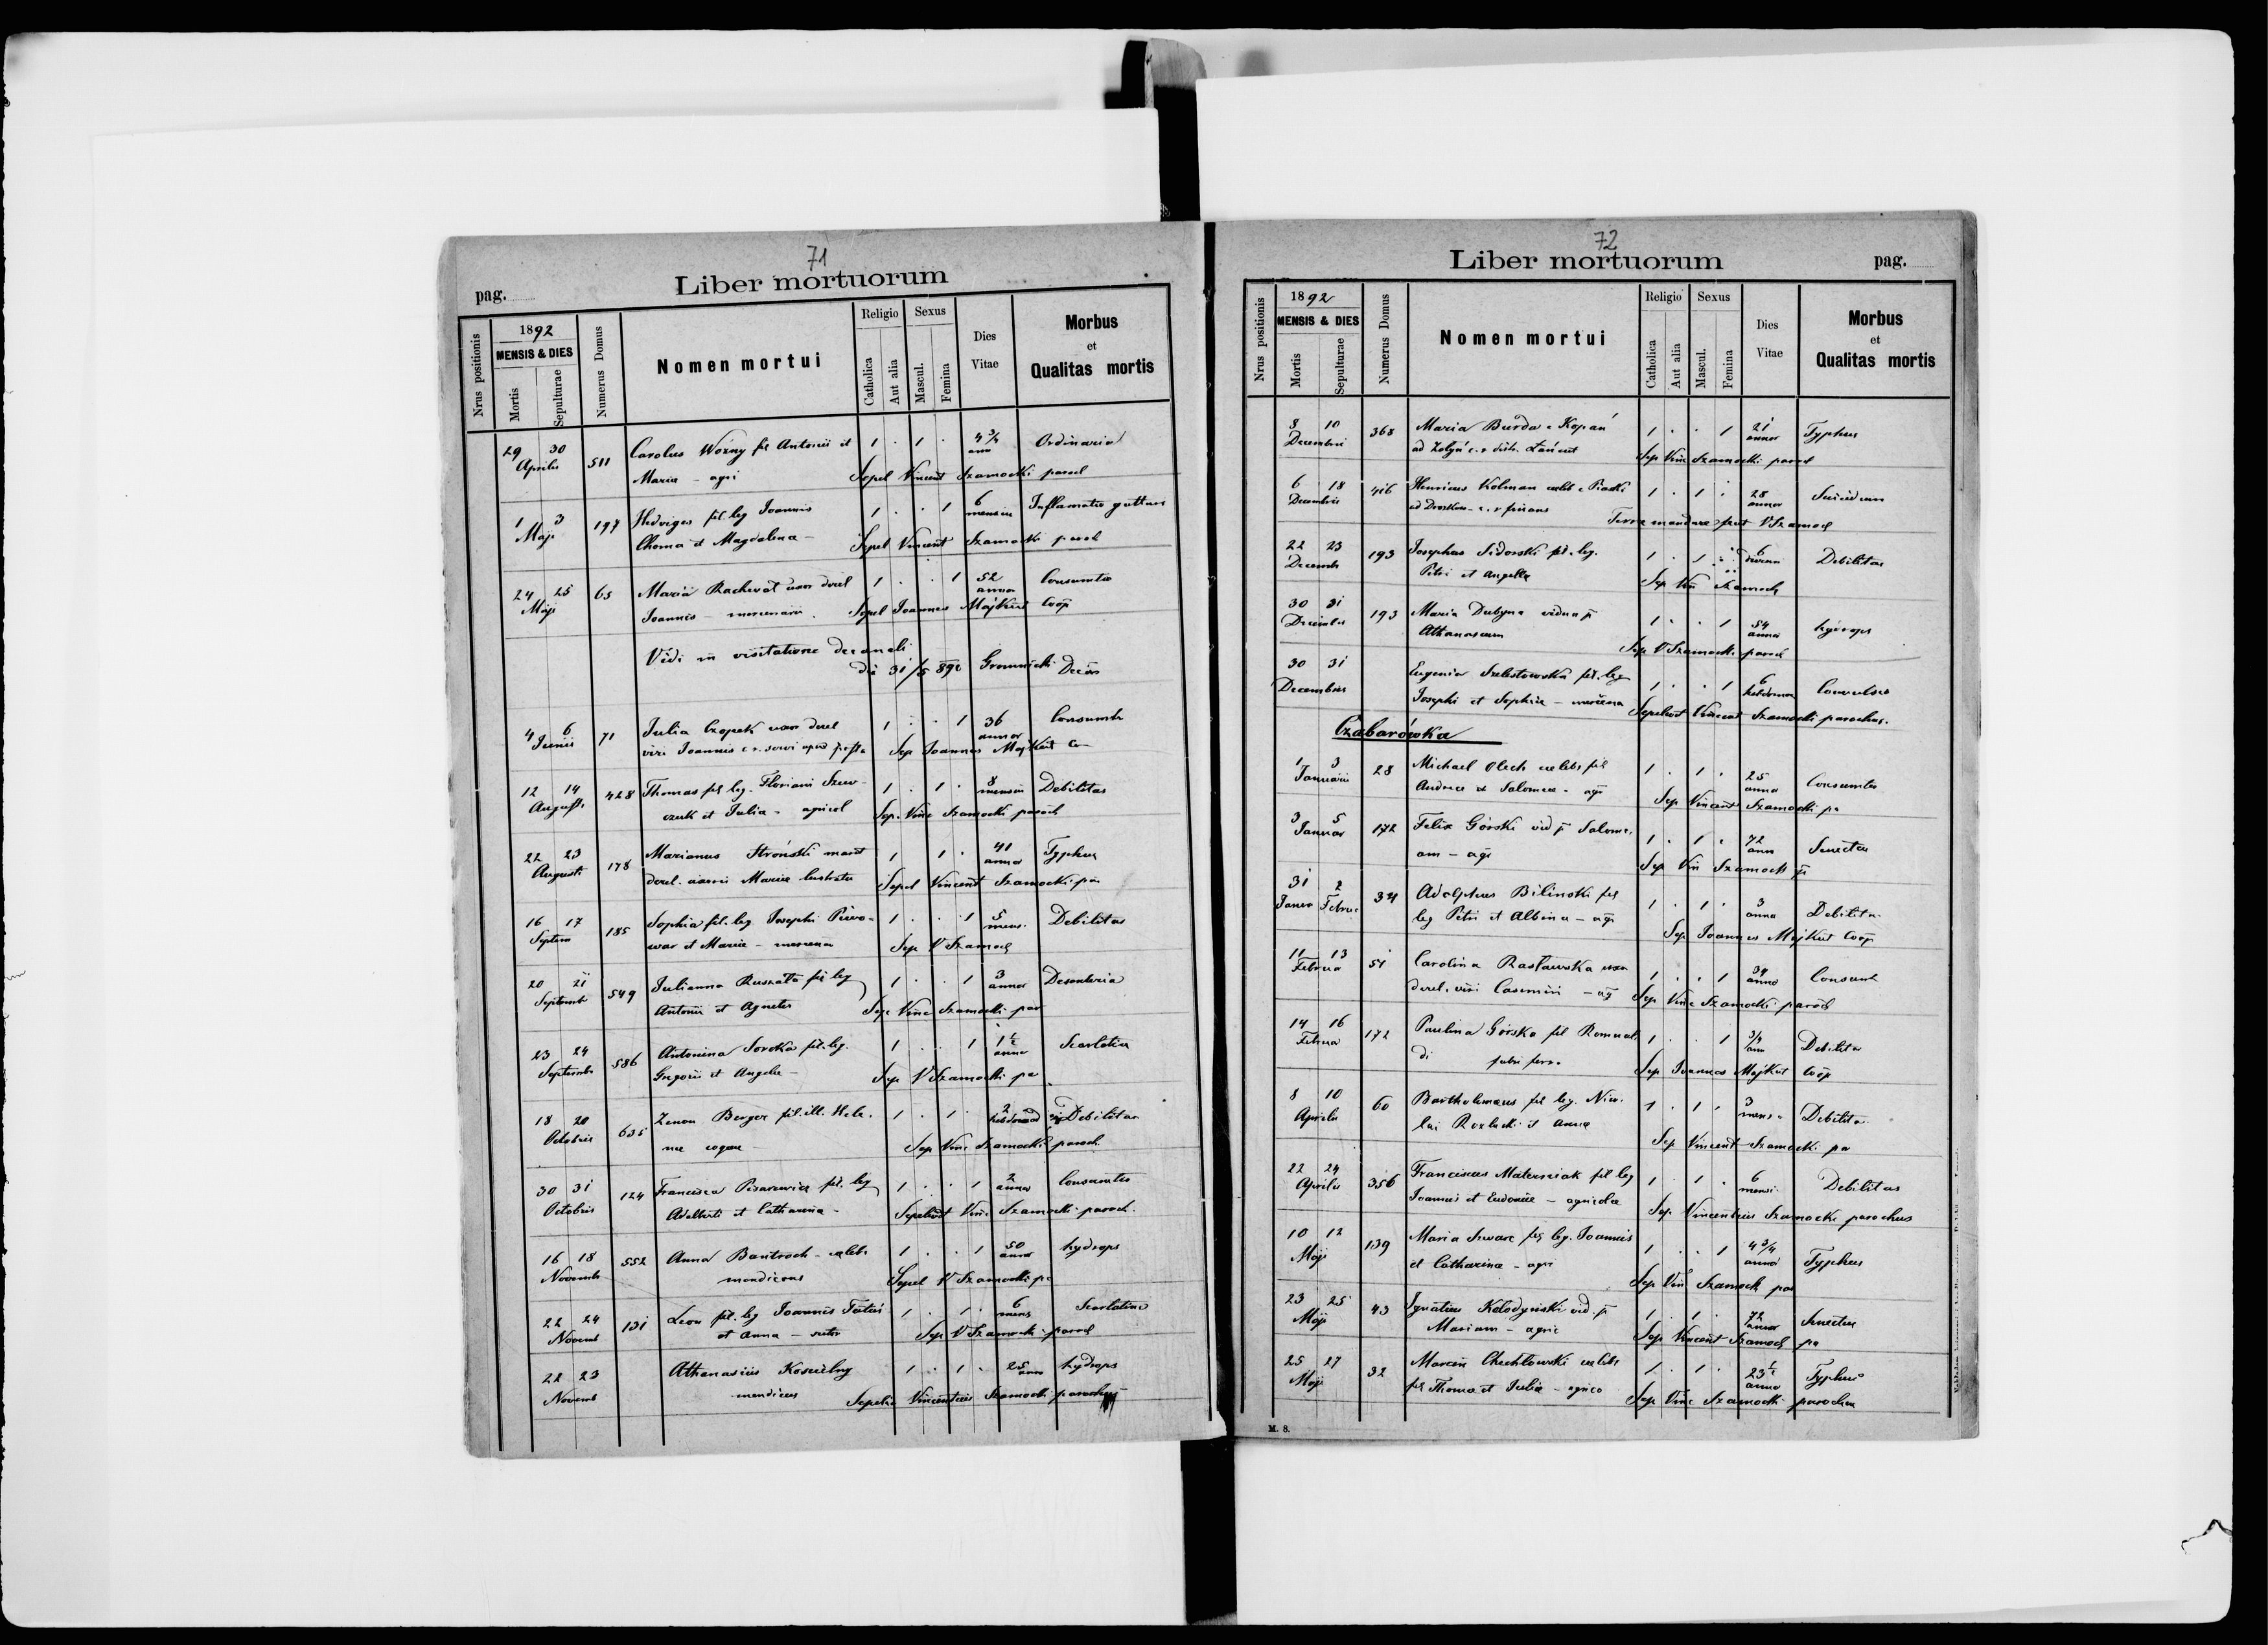 71
pag. Liber mortuorum
Nrus positionis 1892 MENSIS & DIES Mortis Sepulturae Numerus Domus Nomen mortui Religio Catholica Aut alia Sexus Mascul. Femina Dies Vitae Morbus et Qualitas mortis
29 30 Aprilis 511 Carolus Woźny fil Antonii et 1 . 1 . 4 3/4 ann Ordinaria
Maria - agri Sepel Vincent Szamocki paroch
1 3 Maji 197 Hedviges fil. leg Joannis 1 . . 1 6 mensium Inflamatio guttur
Choma et Magdalena - Sepel Vincent Szamocki paroch
24 25 Maji 65 Maria Rachwał uxor derel 1 . . 1 52 annor Consumtio
Joannis - mercenarii . Sepel Joannes Majkut Coop
Vidi in visitatione decanali
die 31/5 892 Gromnicki Decan
4 6 Junii 71 Julia Czopek uxor derel 1 . . 1 36 annor Consumti
viri Joannis c. r. servi apud posta Sep Joannes Majkut Co
12 14 Augusti 428 Thomas fil leg. Floriani Szew- 1 . 1 . 8 mensium Debilitas
czuk et Julia - agricol Sep. Vinc Szamocki paroch
22 23 Augusti 178 Marianus Stroński marit 1 1 . 41 annor Typhus
derel. uxoris Mariae Sepel Vincent Szamocki pa
16 17 Septem 185 Sophia fil. leg Josephi Piwo- 1 . . 1 5 mens. Debilitas
war et Mariae - Sep V Szamock
20 21 Septemb 549 Julianna Ruszała fil leg 1 . . 1 3 annor Desenteria
Antonii et Agnetis Sep Vinc Szamocki par
23 24 Septembr 586 Antonina Soroka fil. leg. 1 . . 1 1 1/2 anno Scarlatina
Gregorii et Angela - Sep V Szamocki pa
18 20 Octobris 635 Zenon Berger fil. ill. Hele- 1 . 1 . 2 hebdomad Debilitas
nae coquae Sep Vinc Szamocki paroch
30 31 Octobris 124 Francisca Pisarewicz fil. leg 1 . . 1 2 annor Consumtio
Adalberti et Catharina - Sepelivit Vinc Szamocki paroch.
16 18 Novembr 552 Anna Bantroch - caelebs 1 . . 1 50 annor hydrops
mendicans Sepel V Szamocki pa
22 24 Novemb 131 Leon fil. leg Joannis 1 . 1 . 6 mens Scarlatina
et Anna - sutor Sep V Szamocki paroch
22 23 Novemb Athanasius Koscielny 1 . 1 . 25 ann hydrops
mendicus Sepeli Vincentius Szamocki parochus
72
Liber mortuorum pag.
Nrus positionis 1892 MENSIS & DIES Mortis Sepulturae Numerus Domus Nomen mortui Religio Catholica Aut alia Sexus Mascul. Femina Dies Vitae Morbus et Qualitas mortis
8 10 Decembri 368 Maria Burda e Kopań 1 . . 1 21 annor Typhus
ad Zołyń c. r distr. Łańcut Sep Vinc Szamocki paroch
6 18 Decembris 416 Henricus Kolman caeleb e Piaski 1 . 1 . 28 annor Suicidium
c. r finans Terrae mandare fecit V Szamock
22 23 Decemb 193 Josephus Sidorski fil. leg. 1 . 1 . 6 dierum Debilitas
Petri et Angella Sep Vin Szamock
30 31 Decembri 193 Maria Dubyna vidua p 1 . . 1 54 annor hydrops
Athanasium Sep V Szamocki paroch
30 31 Decembris Eugenia Szelestowska fil. leg 1 . . 1 6 hebdomad Convulsio
Josephi et Sophiae - Sepelivit Vincent Szamocki parochus.
Czabarówka
1 3 Januarii 28 Michael Olech caelebs fil 1 . 1 . 25 annor Consumtio
Andreae et Salomea - agr Sep Vincent Szamocki pa
3 5 Januar 172 Felix Górski vid p Salome- 1 . 1 . 72 ann Senectus
am - agr Sep Vin Szamock
31 2 Januar Februar 34 Adolphus Bilinski fil 1 . 1 . 3 anno Debilita
leg Petri et Albina - agr Sep Joannes Majkut Coop
11 13 Februar 51 Carolina Rasławska uxor 1 . . 1 34 anno Consumt
derel. viri Casimiri - agr Sep Vinc Szamocki paroch
14 16 Februar 172 Paulina Górska fil Romual- 1 . . 1 3/4 ann Debilita
di fabri ferr. Sep Joannes Majkut Coop
8 10 Aprilis 60 Bartholomaeus fil leg. Nico- 1 . 1 . 3 mens. Debilita
lai Rozlucki et Anna Sep Vincent Szamocki pa
22 24 Aprilis 356 Franciscus Materniak fil leg 1 . 1 . 6 mensi. Debilitas
Joannis et Eudoxiae - agricolae Sep Vincentius Szamocki parochus
10 12 Maji 139 Maria Szwarc fil leg. Joannis 1 . . 1 4 3/4 annor Typhus
et Catharina - agri Sep Vin Szamock par
23 25 Maji 43 Ignatius Kołodyński vid. p 1 . 1 . 72 annor Senectus
Mariam - agric Sep Vincent Szamock pa
25 27 Maji 32 Marcin Chechłowski caelebs 1 . 1 . 23 1/2 annor Typhus
fil Thoma et Julia - agrico Sep Vinc Szamocki parochu
M. 8.